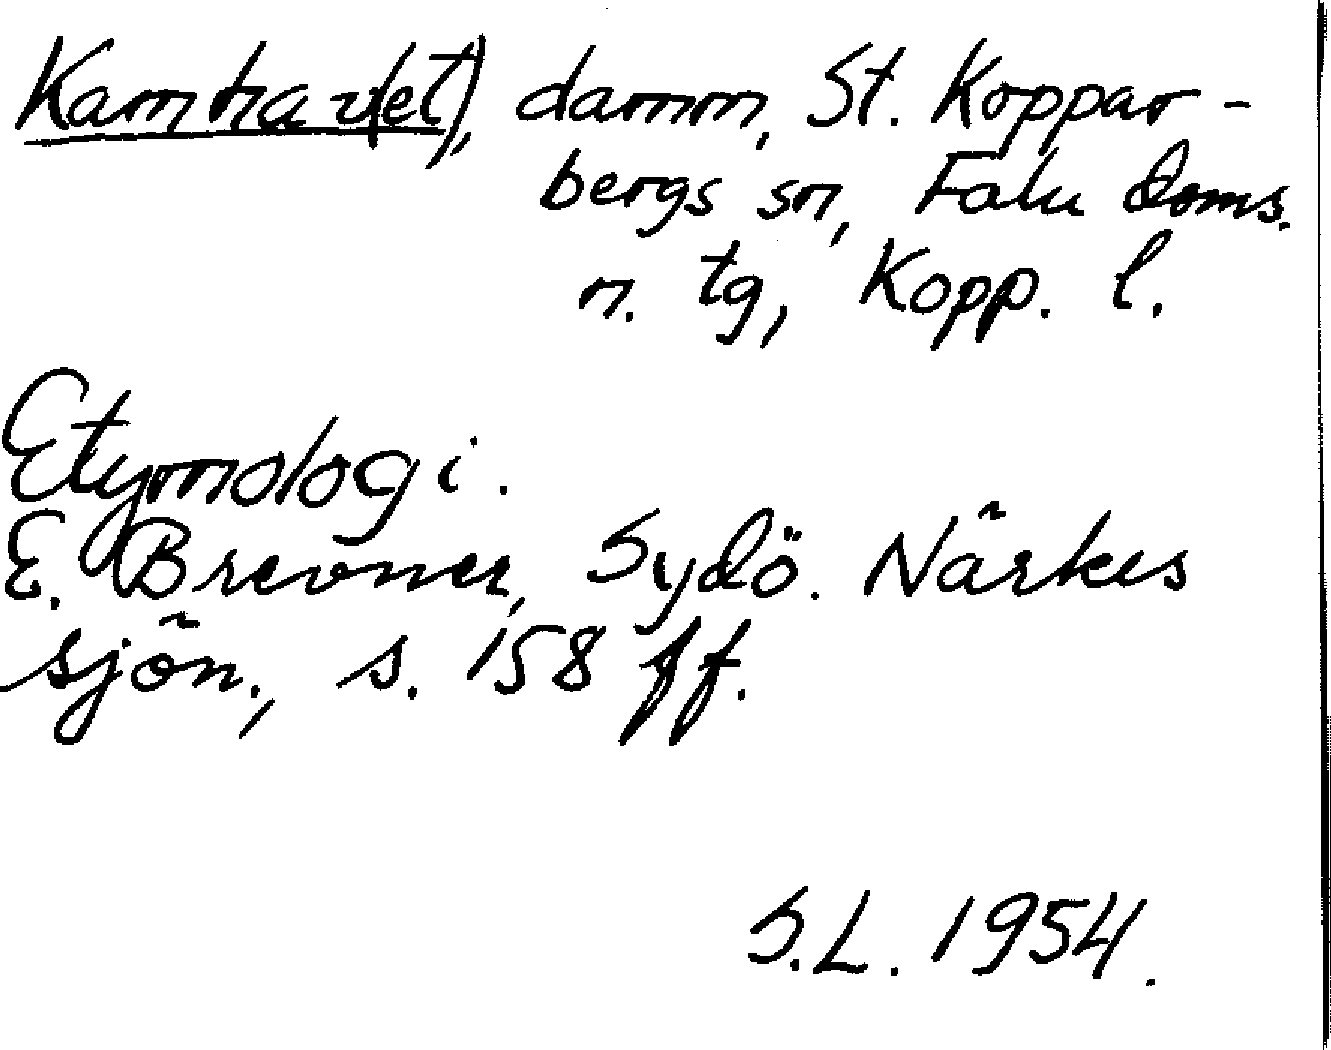 Kamhav(et), damm, St. Koppar-
bergs sn, Falu Doms.
n. tg, Kopp. l.
Etymologi.
E. Brevner, Sydö. Närkes
sjön., s. 158 ff.
S.L. 1954.